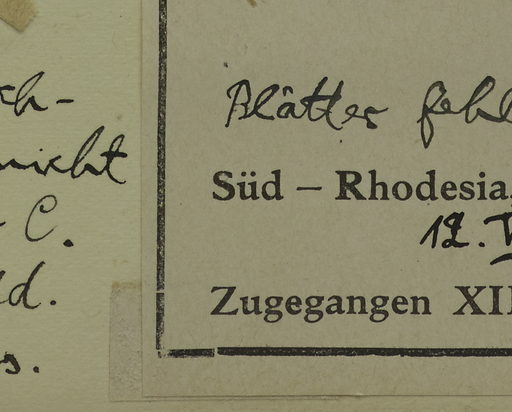 nicht
C.
Blätter fehl
Süd – Rhodesia,
12. V
Zugegangen XII